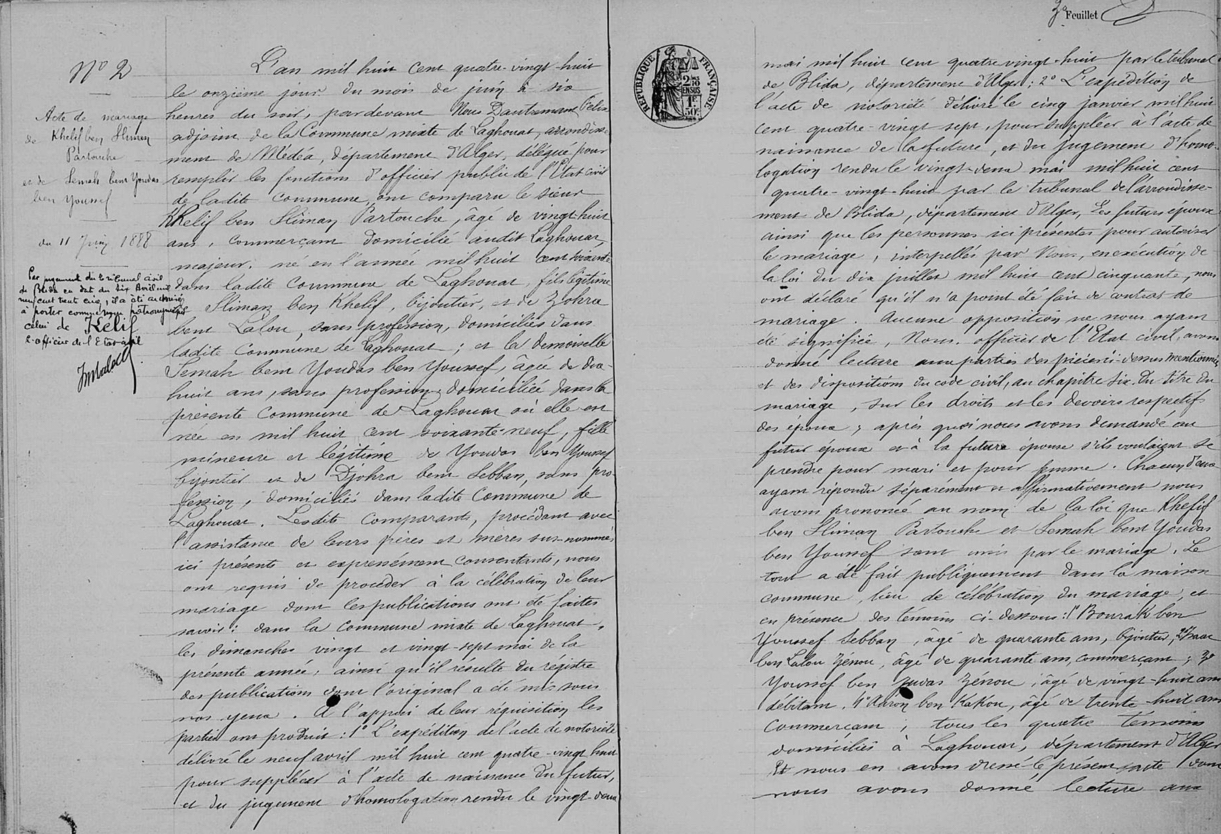 Nº 2
Acte de mariage
de Khelif ben Sliman
Partouche
et de Semah bent Youdas
ben Youssef
du 11 Juin 1888
Par jugement du tribunal civil
de Blida en date du six Avril mil
neuf cent trente cinq, il a été autorisé
à porter comme nom patronymique
celui de Kelif
L'officier de l'Etat civil
L'an mil huit cent quatre-vingt huit
le onzième jour du mois de juin à six
heures du soir, pardevant Nous
adjoint de la Commune mixte de Laghouat, arrondisse-
ment de Médéa, département d'Alger, délégué pour
remplir les fonctions d'officier public de l'Etat civil
de ladite commune, ont comparu le sieur
Khelif ben Sliman Partouche, âgé de vingt-huit
ans, commerçant domicilié audit Laghouat,
majeur, né en l'année mil huit cent soixante
dans ladite commune de Laghouat, fils légitime
de Sliman ben Khelif, bijoutier, et de Zohra
bent Lalou, sans profession, domiciliés dans
ladite Commune de Laghouat; et la demoiselle
Semah bent Youdas ben Youssef, âgée de dix-
huit ans, sans profession, domiciliée dans la
présente Commune de Laghouat où elle est
née en mil huit cent soixante-neuf, fille
mineure et légitime de Youdas ben Youssef
bijoutier et de Djohra bent Sebban, sans pro-
fession, domiciliés dans ladite Commune de
Laghouat. Lesdits comparants, procédant avec
l'assistance de leurs pères et mères sus-nommés
ici présents et expressément consentants, nous
ont requis de procéder à la célébration de leur
mariage dont les publications ont été faites
savoir: dans la Commune mixte de Laghouat,
les dimanches vingt et vingt-sept mai de la
présente année; ainsi qu'il résulte du registre
des publications dont l'original a été mis sous
nos yeux. A l'appui de leur réquisition les
parties ont produit: 1º L'expédition de l'acte de notoriété
délivré le neuf avril mil huit cent quatre-vingt huit
pour suppléer à l'acte de naissance du futur,
et du jugement d'homologation rendu le vingt deux
3e Feuillet
RÉPUBLIQUE FRANÇAISE
mai mil huit cent quatre vingt huit par le tribunal
de Blida, département d'Alger; 2º L'expédition de
l'acte de notoriété délivré le cinq janvier mil huit
cent quatre-vingt sept, pour suppléer à l'acte de
naissance de la future, et du jugement d'homo-
logation rendu le vingt-deux mai mil huit cent
quatre-vingt-huit par le tribunal de l'arrondisse-
ment de Blida, département d'Alger. Les futurs époux
ainsi que les personnes ici présentes pour autoriser
le mariage, interpellés par Nous, en exécution de
la loi du dix juillet mil huit cent cinquante, nous
ont déclaré qu'il n'a point été fait de contrat de
mariage. Aucune opposition ne nous ayant
été signifiée, Nous, officier de l'Etat civil, avons
donné lecture aux parties des pièces ci-dessus mentionnées
et des dispositions du code civil, au chapitre six du titre du
mariage, sur les droits et les devoirs respectifs
des époux; après quoi nous avons demandé au
futur époux et à la future épouse s'ils voulaient se
prendre pour mari et pour femme. Chacun d'eux
ayant répondu séparément et affirmativement nous
avons prononcé au nom de la loi que Khelif
ben Sliman Partouche et Semah bent Youdas
ben Youssef sont unis par le mariage. Le
tout a été fait publiquement dans la maison
commune, lieu de célébration du mariage, et
en présence des témoins ci-dessous: 1º Bourak ben
Youssef Sebban, âgé de quarante ans, bijoutier, 2º
ben Lalou Zenou, âgé de quarante ans, commerçant; 3º
Youssef ben Judas Zenou, âgé de vingt-huit ans
débitant, 4º Aaron ben Kakou, âgé de trente-huit ans
commerçant, tous les quatre témoins
domiciliés à Laghouat, département d'Alger
Et nous en avons dressé le présent acte dont
nous avons donné lecture aux